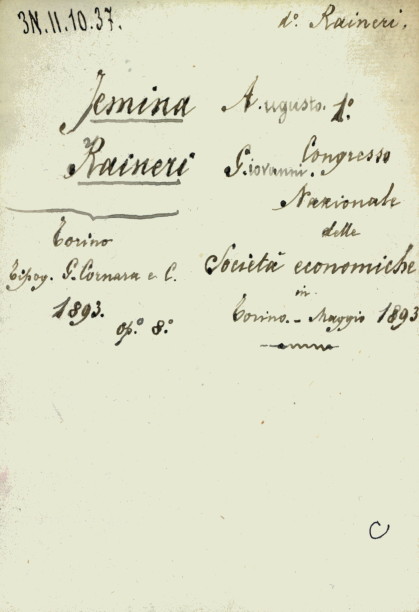 3N.II.10.37.
d.° Raineri.
Jemina Augusto. 1.°
Raineri Giovanni. Congresso
Nazionale
delle
Società economiche
in
Torino. - Maggio 1893
Torino
Tipog. G. Cornara e C.
1893.
op.° 8.°
C